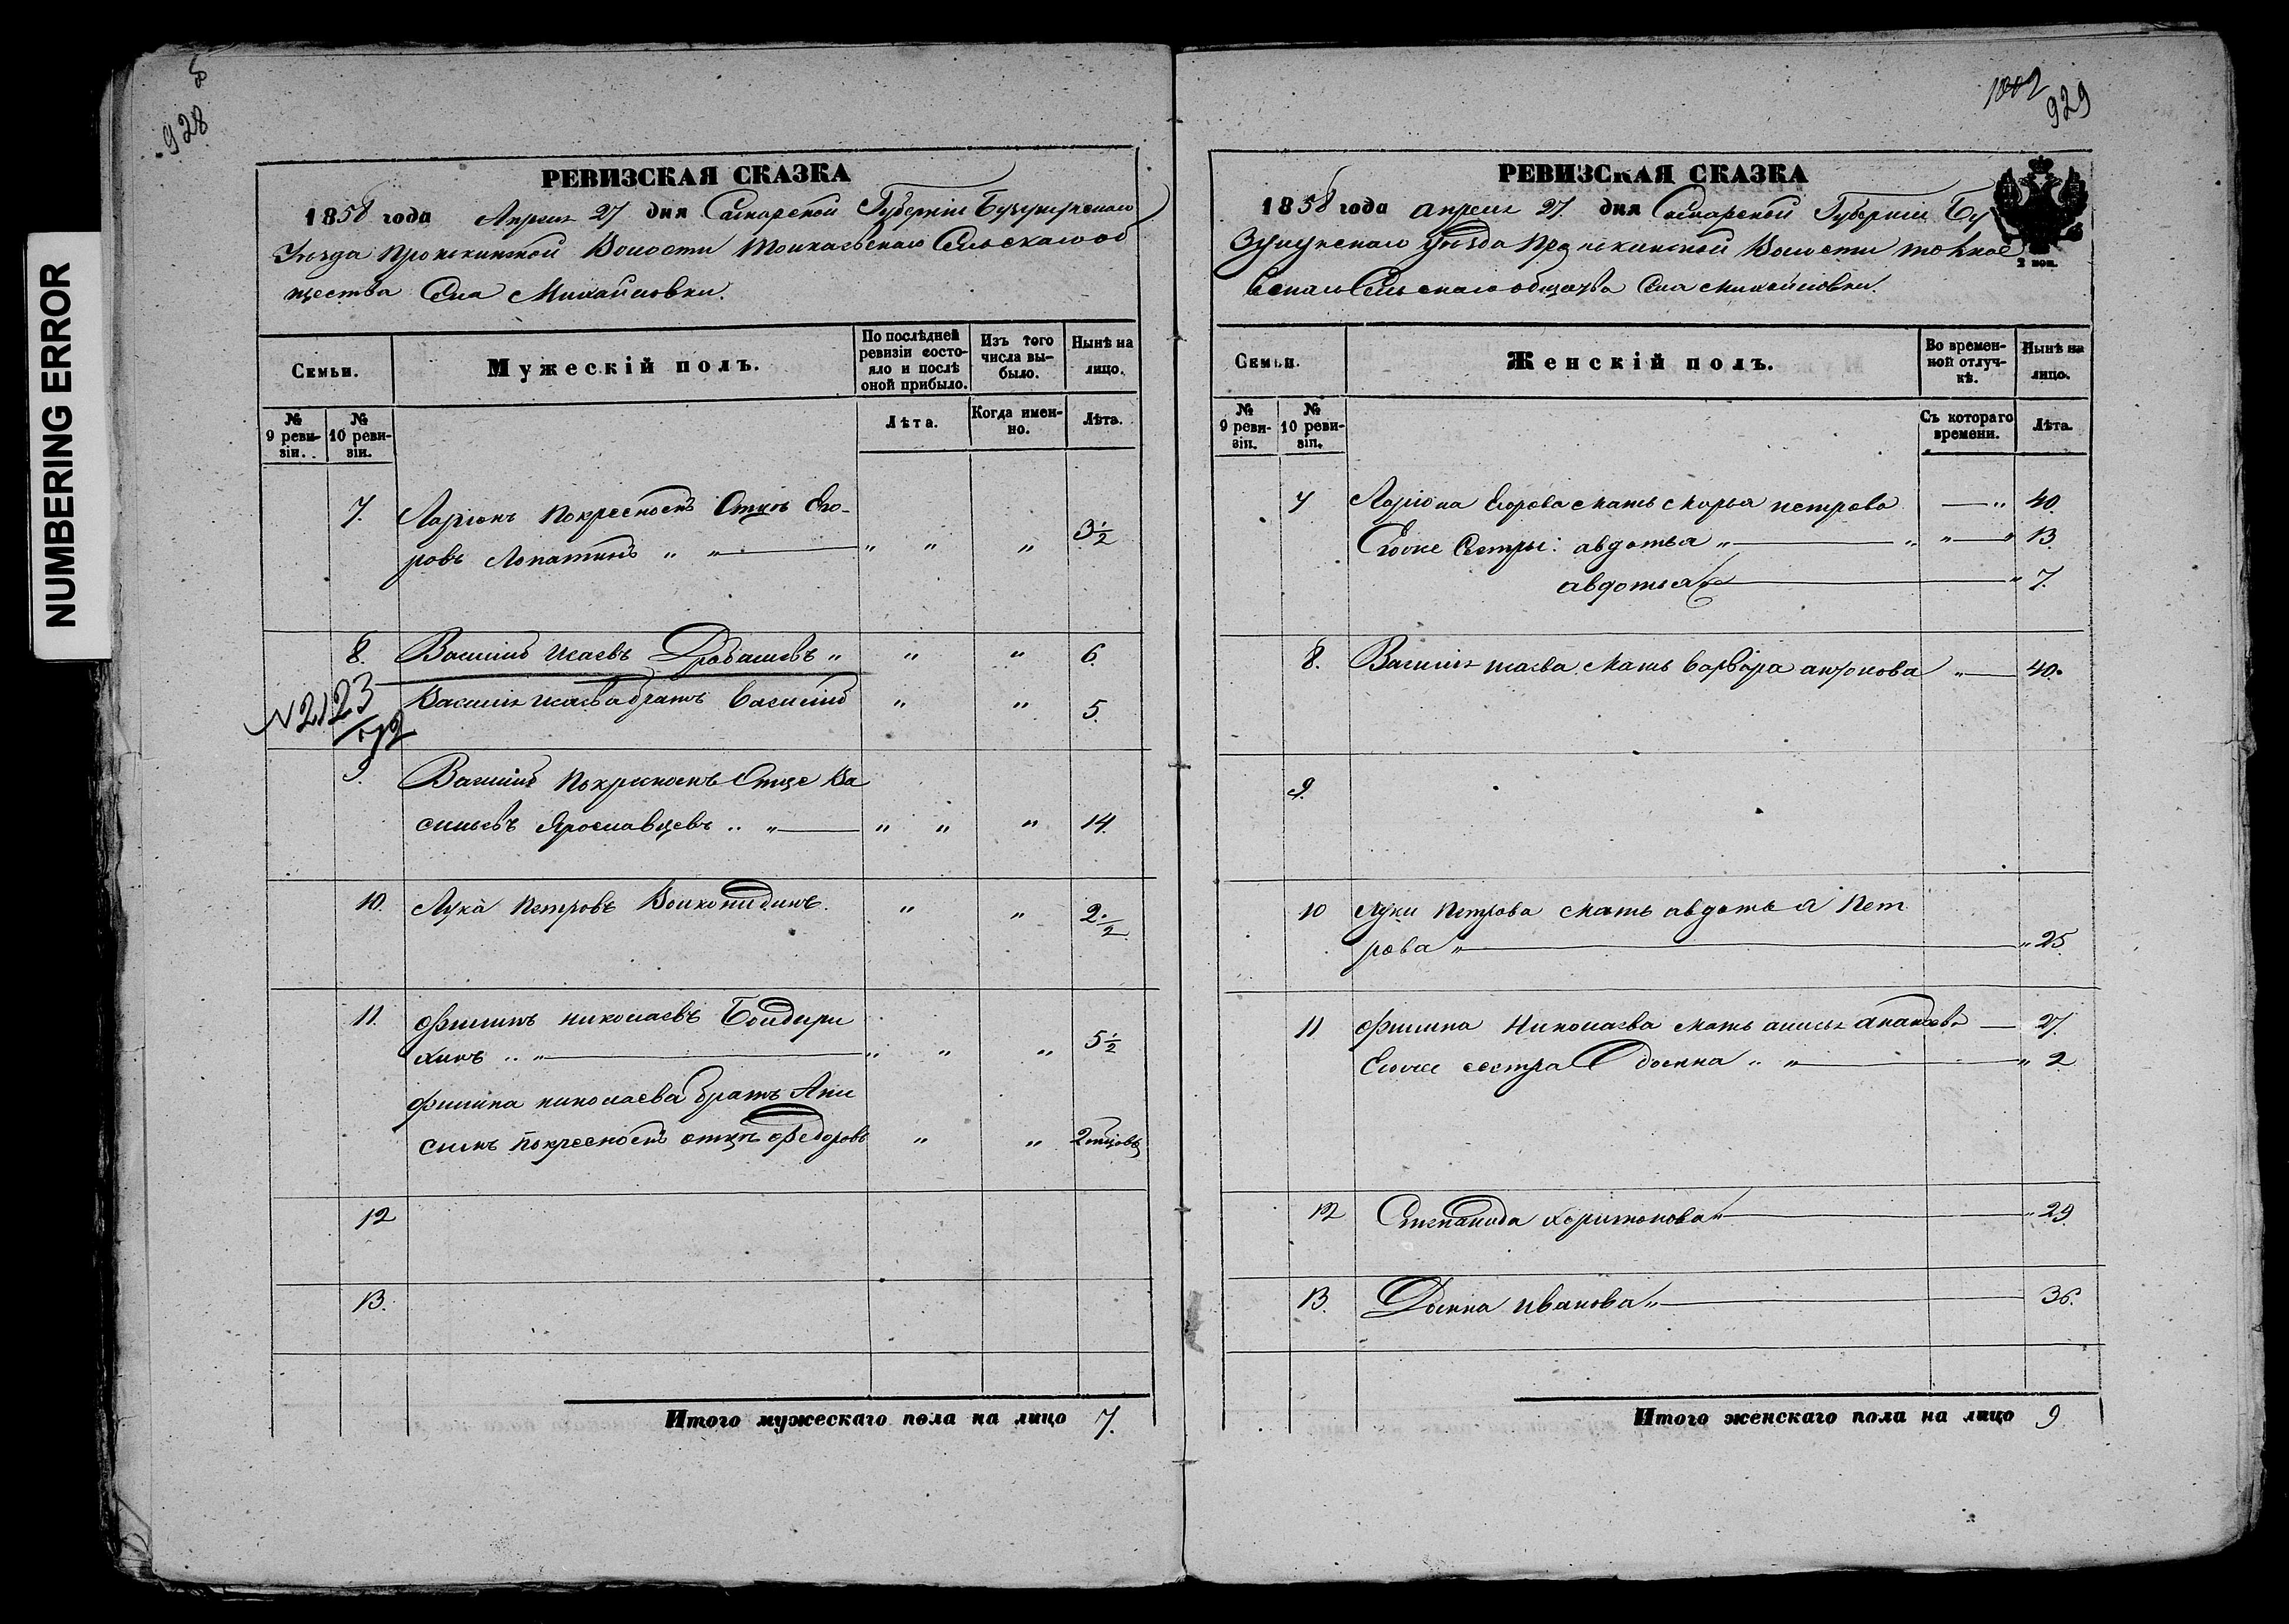 NUMBERING ERROR
928
РЕВИЗСКАЯ СКАЗКА
1858 года Апреля 27 дня Самарской Губерніи Бузулукскаго
Уѣзда Пронькинской Волости Токаевскаго Сельскаго об
щества Села Михайловки.
Семьи.
Мужескій полъ.
По послѣдней ревизіи состояло и послѣ оной прибыло.
Изъ того числа выбыло.
Нынѣ на лицо.
№ 9 ревизіи.
№ 10 ревизіи.
Лѣта.
Когда именно.
Лѣта.
7. Ларіонъ Покресному Отцу Его-
ровъ Лопатинъ " " " " " 3½
8. Василій Исаевъ " " " 6.
Василія Исаева братъ Василій " " 5.
N 2123
72
9. Василій Покресному Отце Ва
сильевъ Ярославцевъ " " " " " 14.
10. Лука Петровъ " " 2½
11. Филипъ Николаевъ Болдыри
хинъ " " " " " 5½
Филипа Николаева братъ Ани
симъ покресному отцу Федоровъ " "
12
13.
Итого мужескаго пола на лицо 7.
1002
929
РЕВИЗСКАЯ СКАЗКА
1858 года апреля 27. дня Самарской Губерніи Бу
зулукскаго уѣзда Пронькинской Волости
вскаго Сельскаго общества Села Михайловки.
2 коп.
Семьи.
Женскій полъ.
Во временной отлучкѣ.
Нынѣ на лицо.
№ 9 ревизіи.
№ 10 ревизіи.
Съ котораго времени.
Лѣта.
7 Ларіона Егорова мать Марья петрова " 40.
Его же Сестры: авдотья " " " " 13.
авдотья " 7.
8. Василія исаева мать варвара антонова " 40.
9.
10 Луки Петрова мать авдотья Пет
рова " " 25
11 Филипа Николаева мать 27.
Его же сестра Домна " " " 2
12 Степанида харитонова " " 29.
13. Домна иванова " 36.
Итого женскаго пола на лицо 9